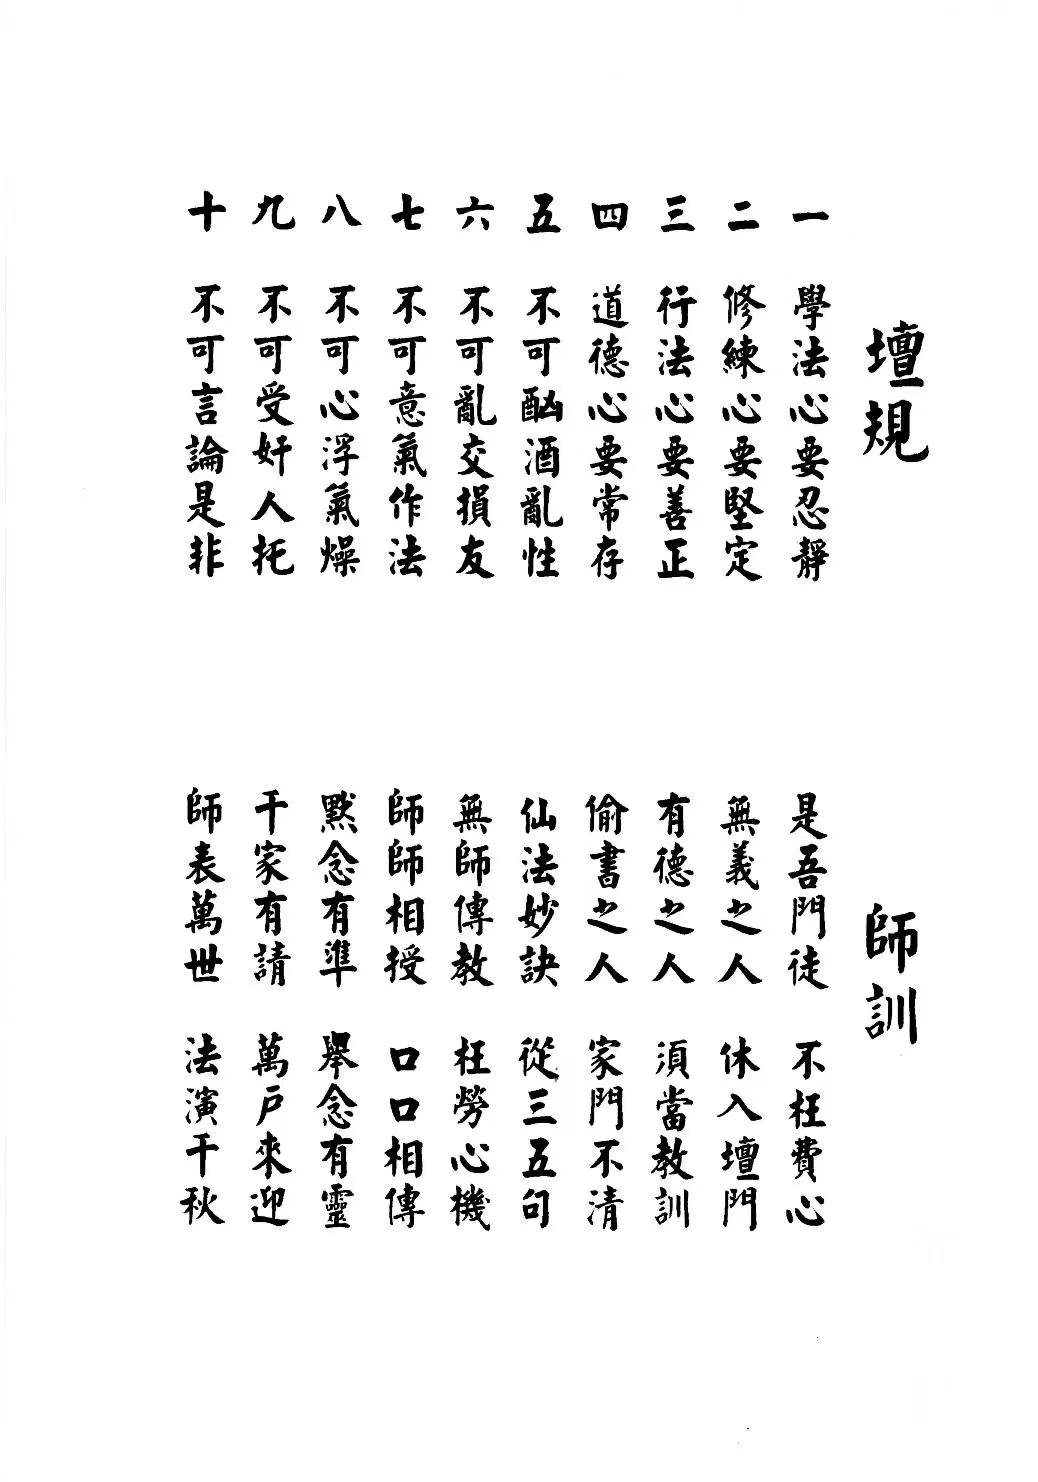 壇規
一 學法心要忍靜
二 修練心要堅定
三 行法心要善正
四 道德心要常存
五 不可酗酒亂性
六 不可亂交損友
七 不可意氣作法
八 不可心浮氣燥
九 不可受奸人托
十 不可言論是非
師訓
是吾門徒 不枉費心
無義之人 休入壇門
有德之人 須當教訓
偷書之人 家門不清
仙法妙訣 從三五句
無師傳教 枉勞心機
師師相授 口口相傳
默念有準 舉念有靈
千家有請 萬戶來迎
師表萬世 法演千秋